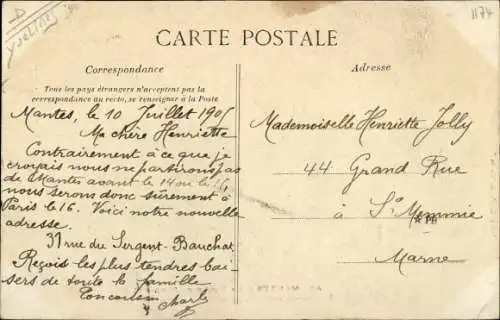 D
Yvelines
1174
CARTE POSTALE
Correspondance
Adresse
Tous les pays étrangers n'acceptent pas la
correspondance au recto, se renseigner à la Poste
Mantes, le 10 Juillet 190
Ma chère Henriette
Contrairement à ce que je
croyais nous ne partirons pas
de Mantes avant le 14 ou le
nous serons donc sûrement à
Paris le 16. Voici notre nouvelle
adresse.
31 rue du Sergent-Bauchat
Reçois les plus tendres bai-
sers de toute la famille
Ton cousin
Charles
Mademoiselle Henriette Jolly
44 Grand Rue
à St Memmie
Marne